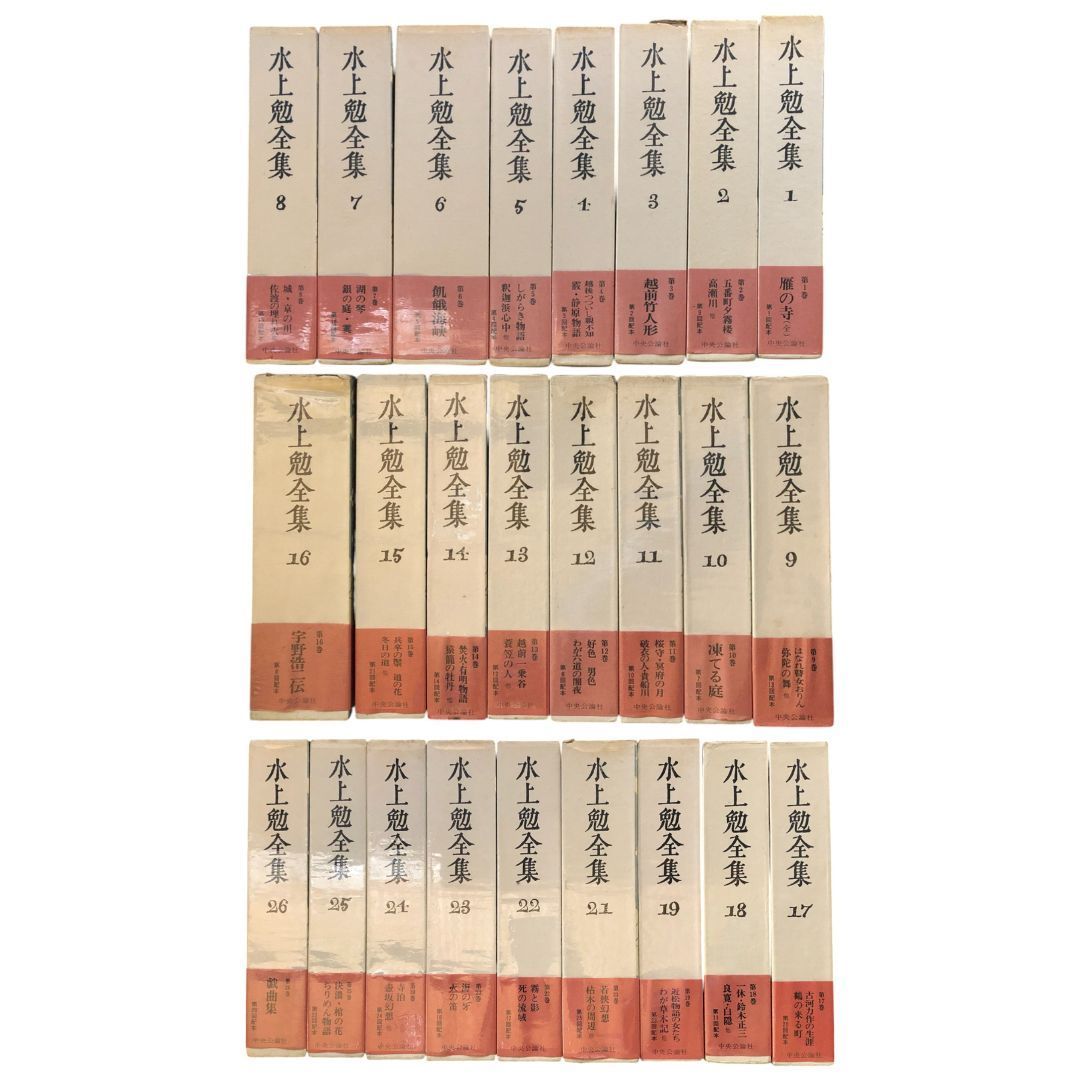 水上勉全集
8
第8巻
城・草の川
佐渡の埋れ火
中央公論社
水上勉全集
7
第7巻
湖の琴
銀の庭・蓑
中央公論社
水上勉全集
6
第6巻
飢餓海峡
中央公論社
水上勉全集
5
第5巻
しがらき物語
釈迦浜心中 他
第4回配本
中央公論社
水上勉全集
4
第4巻
越後つついし親不知
霰・静原物語
第5回配本
中央公論社
水上勉全集
3
第3巻
越前竹人形
第2回配本
中央公論社
水上勉全集
2
第2巻
五番町夕霧楼
高瀬川 他
第3回配本
中央公論社
水上勉全集
1
第1巻
雁の寺(全)
第1回配本
中央公論社
水上勉全集
16
第16巻
宇野浩二伝
中央公論社
水上勉全集
15
第15巻
兵卒の鬃 道の花
冬日の道 他
第21回配本
中央公論社
水上勉全集
14
第14巻
焚火・有明物語
猿籠の牡丹 他
第14回配本
中央公論社
水上勉全集
13
第13巻
越前一乗谷
蓑笠の人 他
第12回配本
中央公論社
水上勉全集
12
第12巻
好色 男色
わが六道の闇夜
中央公論社
水上勉全集
11
第11巻
桜守・冥府の月
破衣の人・貴船川
第10回配本
中央公論社
水上勉全集
10
第10巻
凍てる庭
中央公論社
水上勉全集
9
第9巻
はなれ瞽女おりん
弥陀の舞 他
第13回配本
中央公論社
水上勉全集
26
第26巻
戯曲集
中央公論社
水上勉全集
25
第25巻
決潰・棺の花
ちりめん物語
中央公論社
水上勉全集
24
寺泊
壺坂幻想 他
中央公論社
水上勉全集
23
海の牙
火の笛
中央公論社
水上勉全集
22
霧と影
死の流域
中央公論社
水上勉全集
21
若狭幻想
枯木の周辺 他
中央公論社
水上勉全集
19
第19巻
近松物語の女たち
わが草木記 他
中央公論社
水上勉全集
18
第18巻
一休・鈴木正三
良寛・白隠 他
第11回配本
中央公論社
水上勉全集
17
第17巻
古河力作の生涯
鶴の来る町
中央公論社